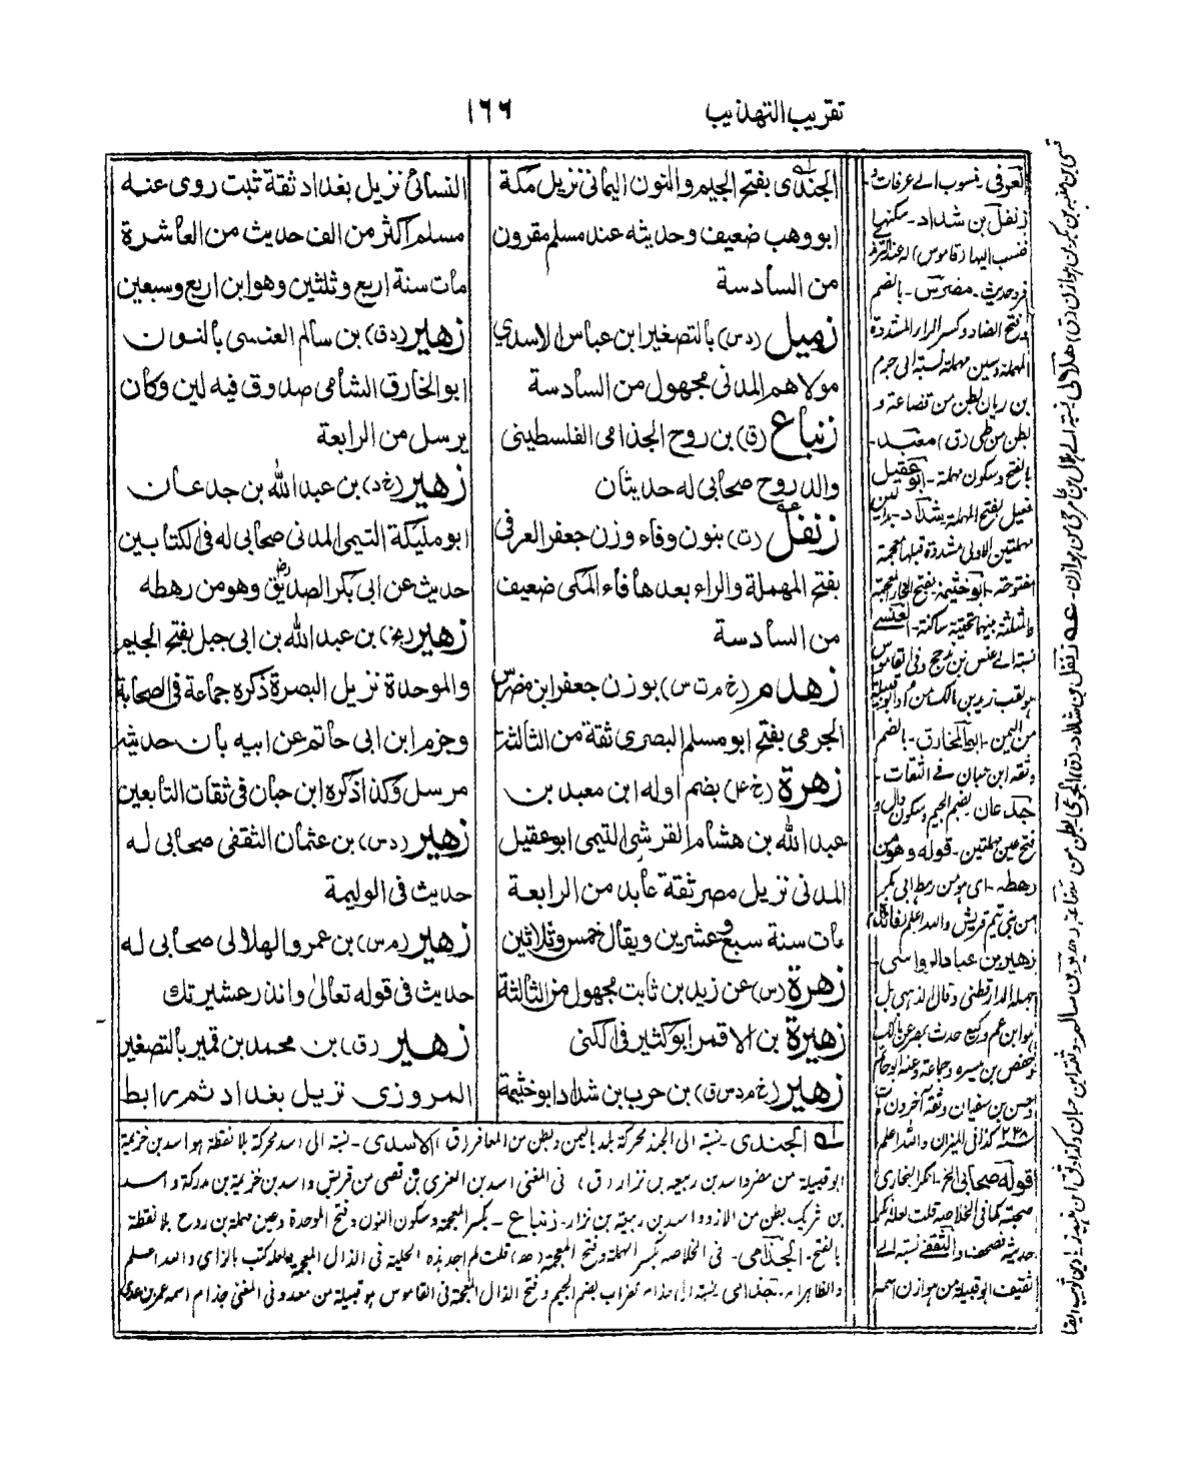 تقريب التهذيب
١٦٦
الجندى بفتح الجيم والنون اليمانى نزيل مكة
ابو وهب ضعيف وحديثه عند مسلم مقرون
من السادسة
زميل (د س) بالتصغير ابن عباس الاسدي
مولاهم المدنى مجهول من السادسة
زنباع (ق) بن روح الجذامى الفلسطينى
والد روح صحابى له حديثان
زنفل (ت) بنون وفاء وزن جعفر العرفى
بفتح المهملة والراء بعدها فاء المكى ضعيف
من السادسة
زهدم (خ م ت س) بوزن جعفر ابن مضرس
الجرمى بفتح ابو مسلم البصرى ثقة من الثالثة
زهرة (خ عم) بضم اوله ابن معبد بن
عبد الله بن هشام القرشى التيمى ابو عقيل
المدنى نزيل مصر ثقة عابد من الرابعة
مات سنة سبع وعشرين ويقال خمس وثلاثين
زهرة (س) عن زيد بن ثابت مجهول من الثالثة
زهيرة بن الاقمر ابو كثير فى الكنى
زهير (خ م د س ق) بن حرب بن شداد ابو خثيمة
النسائى نزيل بغداد ثقة ثبت روى عنه
مسلم اكثر من الف حديث من العاشرة
مات سنة اربع وثلثين وهو ابن اربع وسبعين
زهير (د ق) بن سالم العنسى بالنون
ابو المخارق الشامى صدوق فيه لين وكان
يرسل من الرابعة
زهير (خ د) بن عبد الله بن جدعان
ابو مليكة التيمى المدنى صحابى له فى الكتابين
حديث عن ابى بكر الصديق وهو من رهطه
زهير (بخ) بن عبد الله بن ابى جبل بفتح الجيم
والموحدة نزيل البصرة ذكره جماعة فى الصحابة
وجزم ابن ابى حاتم عن ابيه بان حديثه
مرسل وكذا ذكره ابن حبان فى ثقات التابعين
زهير (د س) بن عثمان الثقفى صحابى له
حديث فى الوليمة
زهير (م س) بن عمرو الهلالى صحابى له
حديث فى قوله تعالى وانذر عشيرتك
زهير (ق) بن محمد بن قمير بالتصغير
المروزى نزيل بغداد ثم رابط
الجندى - نسبة الى الجند محركة بلد باليمن وبطن من المعافر (ق) الاسدى - نسبة الى اسد محركة بلا نقطة هو اسد بن خزيمة
ابو قبيلة من مضر واسد بن ربيعه بن نزار (ق) فى المغنى اسد بن العزى بن قصى من قريش واسد بن خزيمة بن مدركة واسد
بن شريك بطن من الازد واسد بن ربيعة بن نزار - زنباع - بكسر المعجمة وسكون النون وفتح الموحدة وعين مهملة بن روح بلا نقطة
بالفتح. الجذامى - فى الخلاصه بكسر المهملة وفتح المعجمة قلت لم اجد هذه الحلية فى الذال المعجمة لعله كتب بالزاى والله اعلم
والظاهر انه جذامى نسبة الى جذام كغراب بضم الجيم وفتح الذال المعجمة فى القاموس هو قبيلة من معد وفى المغنى جذام اسمه عمرو بن عدى
العرفى ينسوب الى عرفات و
زنفل بن شداد - سكنها
فنسب اليها (قاموس) له عند الترمذ
فرد حديث - مضرس - بالضم
وفتح الضاد وكسر الراء المشددة
المهملة وسين مهملة نسبة الى جرم
بن ريان بطن من قضاعة و
بطن من طى (ق) معبد -
بالفتح وسكون مهملة - ابو عقيل
مفتوحة - ابو خثيمة بفتح الخاء المعجمة
والمثلثة بينهما تحتية ساكنة - العنسى
من اليمن - ابو المخارق - بالضم
وثقه ابن حبان فى الثقات -
جدعان بضم الجيم وسكون دال و
فتح عين مهملتين - قوله وهو من
رهطه - اى هو من رهط ابى بكر
من بنى تيم قريش والله اعلم
زهير بن عباد الرواسى -
جهله الدارقطنى وقال الذهبى بل
هو ابن عم وكيع حدث بمصر عن مالك
وحفص بن ميسره وجماعة وعنه ابو حاتم
والحسن بن سفيان وثقه آخرون
سنة ٢٣٨ كذا فى الميزان والله اعلم
قوله صحابى الخ - انكر البخارى
صحبته كما فى الخلاصة قلت لعله انكر
ثقيف ابو قبيلة من هوازن اسمه